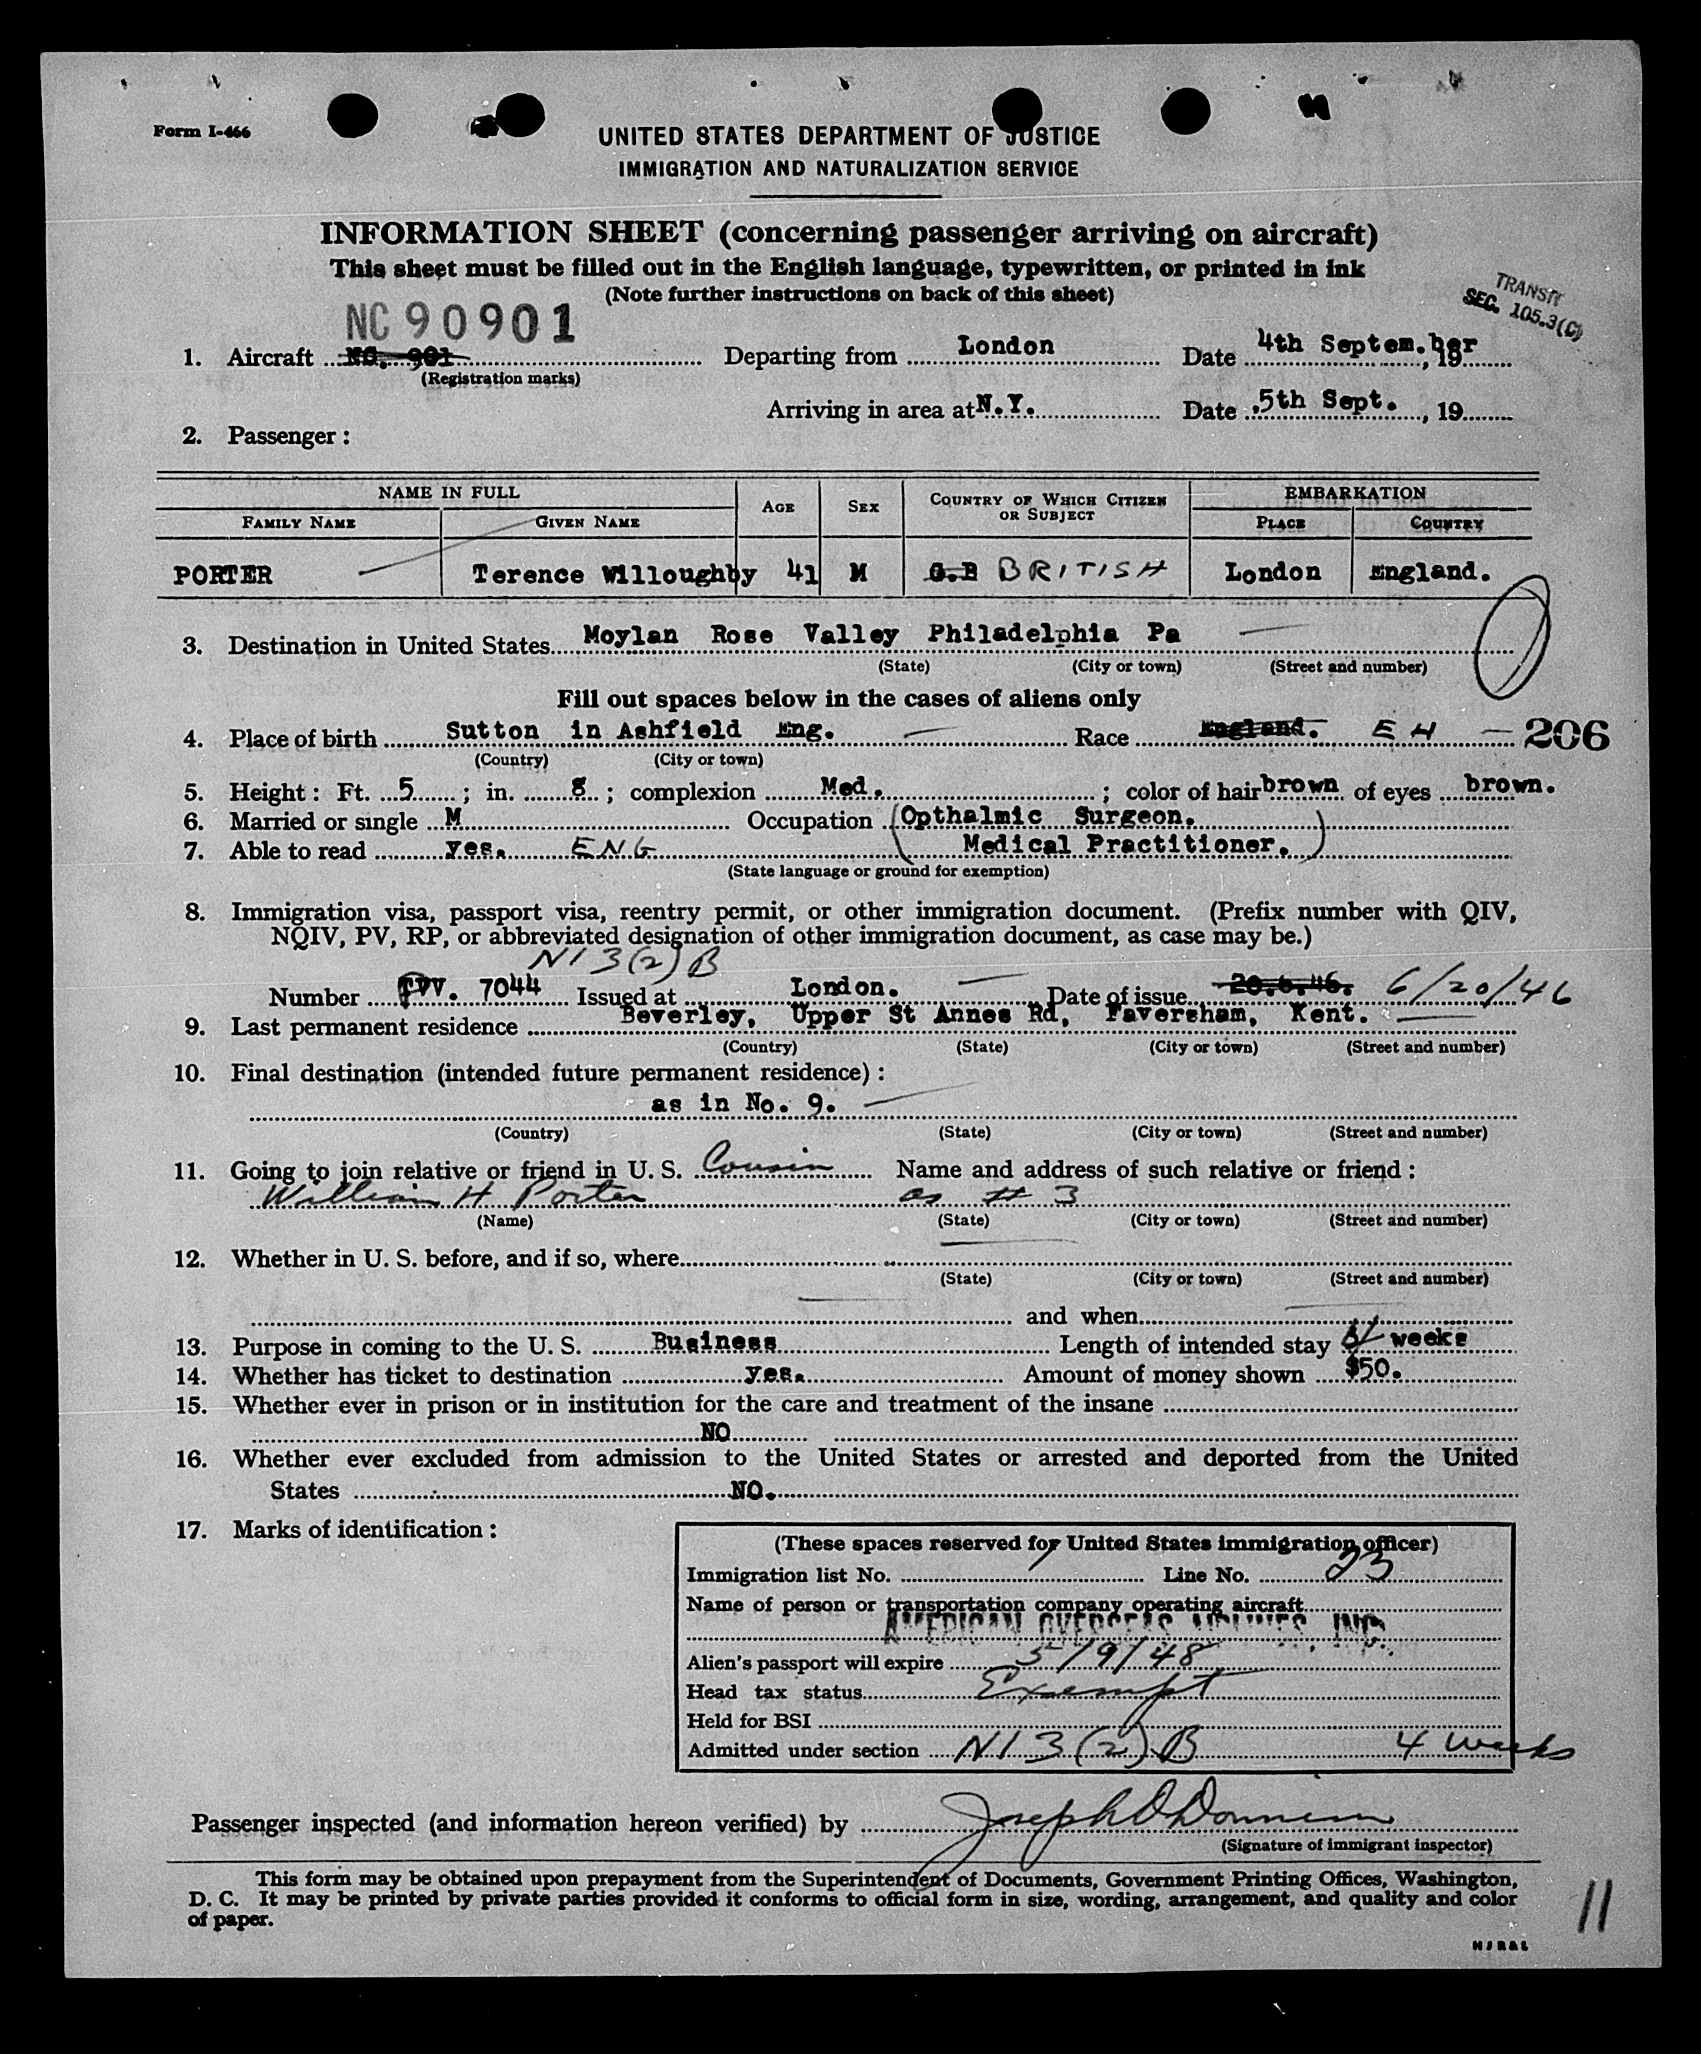 Form I-466
UNITED STATES DEPARTMENT OF JUSTICE
IMMIGRATION AND NATURALIZATION SERVICE
INFORMATION SHEET (concerning passenger arriving on aircraft)
This sheet must be filled out in the English language, typewritten, or printed in ink
(Note further instructions on back of this sheet)
TRANSIT
SEC. 105.3(C)
NC 90901
1. Aircraft NC. 901 Departing from London Date 4th Septem.ber, 19
(Registration marks)
Arriving in area at N.Y. Date 5th Sept., 19
2. Passenger:
NAME IN FULL AGE SEX COUNTRY OF WHICH CITIZEN OR SUBJECT EMBARKATION
FAMILY NAME GIVEN NAME PLACE COUNTRY
PORTER Terence Willoughby 41 M G.B BRITISH London England.
3. Destination in United States Moylan Rose Valley Philadelphia Pa
(State) (City or town) (Street and number)
Fill out spaces below in the cases of aliens only
4. Place of birth Sutton in Ashfield Eng. Race England. EH 206
(Country) (City or town)
5. Height: Ft. 5; in. 8; complexion Med.; color of hair brown of eyes brown.
6. Married or single M Occupation (Opthalmic Surgeon.
7. Able to read yes. ENG Medical Practitioner.)
(State language or ground for exemption)
8. Immigration visa, passport visa, reentry permit, or other immigration document. (Prefix number with QIV,
NQIV, PV, RP, or abbreviated designation of other immigration document, as case may be.)
N13(2)B
Number V. 7044 Issued at London. Date of issue 20.6.46. 6/20/46
9. Last permanent residence Beverley, Upper St Annes Rd, Faversham, Kent.
(Country) (State) (City or town) (Street and number)
10. Final destination (intended future permanent residence):
as in No. 9.
(Country) (State) (City or town) (Street and number)
11. Going to join relative or friend in U. S. Cousin Name and address of such relative or friend:
William H. Porter as # 3
(Name) (State) (City or town) (Street and number)
12. Whether in U. S. before, and if so, where
(State) (City or town) (Street and number)
and when
13. Purpose in coming to the U. S. Business Length of intended stay weeks
14. Whether has ticket to destination yes. Amount of money shown $50.
15. Whether ever in prison or in institution for the care and treatment of the insane
NO
16. Whether ever excluded from admission to the United States or arrested and deported from the United
States NO.
17. Marks of identification:
(These spaces reserved for United States immigration officer)
Immigration list No. 1 Line No. 23
Name of person or transportation company operating aircraft
AMERICAN OVERSEAS AIRLINES, INC.
Alien's passport will expire 5/9/48
Head tax status Exempt
Held for BSI
Admitted under section N13(2)B 4 weeks
Passenger inspected (and information hereon verified) by Joseph
(Signature of immigrant inspector)
This form may be obtained upon prepayment from the Superintendent of Documents, Government Printing Offices, Washington,
D. C. It may be printed by private parties provided it conforms to official form in size, wording, arrangement, and quality and color
of paper.
11